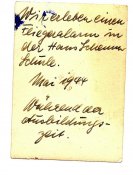 Wir erleben einen
Fliegeralarm in
der Hans Schemm
Schule.
Mai 1944
Während der
Ausbildungs-
zeit.